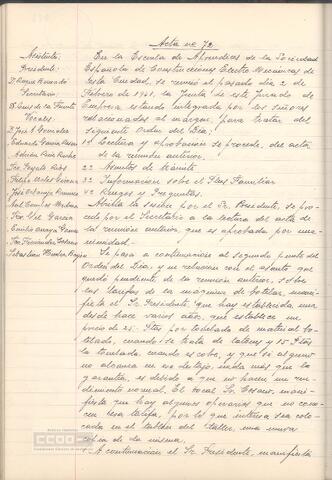 Acta nº 72
Asistentes:
Presidente:
D. Roque
Secretario
D. Luis de la Fuente
Vocales
D. José J. González
Eduardo García
Adrián
Fco.
Felipe
José
Fco. García
Emilio Amaya
Fco. Fernández
Sebastián
En la Escuela de Aprendices de la Sociedad
Española de Construcciones Electro Mecánicas de
esta Ciudad, se reunió el pasado día 2 de
Febrero de 1961, la Junta de este Jurado de
Empresa estando integrada por los señores
relacionados al margen, para tratar del
siguiente Orden del Día:
1º Lectura y aprobación si procede, del acta
de la reunión anterior.
2º Asuntos de trámite
3º Información sobre el Plus Familiar
4º Ruegos y Preguntas.
Abierta la sesión por el Sr. Presidente, se pro-
cede por el Secretario a la lectura del acta de
la reunión anterior, que es aprobada por una-
nimidad.
Se pasa a continuación al segundo punto del
Orden del Día, y en relación con el asunto que
quedó pendiente de la reunión anterior, sobre
las tarifas de la máquina de botelar, mani-
fiesta el Sr. Presidente, que hay establecida una
desde hace varios años, que establece un
precio de 25 Ptas por tonelada de material
cuando se trata de latones y 15 Ptas
la tonelada cuando es cobre, y que si alguno
no alcanza en ese destajo, nada más que la
garantía, es debido a que no hacen un ren-
dimiento normal. El Vocal Sr. mani-
fiesta que hay algunos operarios que no cono-
cen esa tarifa, por lo que interesa sea colo-
cada en el tablón del Taller, una
copia de la misma.
A continuación el Sr. Presidente, manifiesta
CCOO